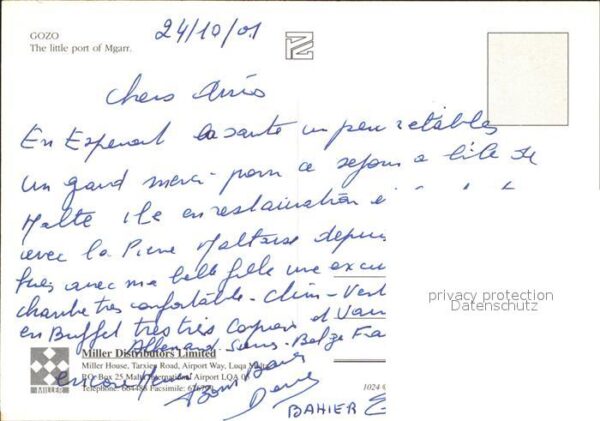 GOZO
The little port of Mgarr.
24/10/01
Chers Amis
En Esperant la sante un peu retablie
un grand merci pour ce sejour a l'ile de
Malte ile en restauration
avec la Pierre Maltaise depuis
avec ma belle fille une excu
chambre tres confortable - Clim - Vent
en Buffet tres tres copieux et
Allemand - Suisse - Belge Fra
Miller Distributors Limited
Miller House, Tarxien Road, Airport Way, Luqa
encore Merci
P.O. Box 25 Malta International Airport LQA 05
Telephone: 664488 Facsimile:
Bons Baisers
MILLER
1024
BAHIER
privacy protection
Datenschutz